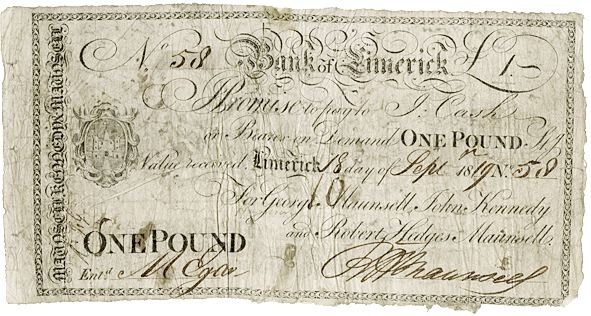 No. 58 Bank of Limerick £1.—
I Promise to pay to J. Cash
or Bearer on Demand ONE POUND. Stg.
Value received. Limerick 18 day of Septr. 1819 No. 58
For George Maunsell, John Kennedy
and Robert Hedges Maunsell.
ONE POUND
Entd. M Egan
RHMaunsell
MAUNSELL KENNEDY & MAUNSELL